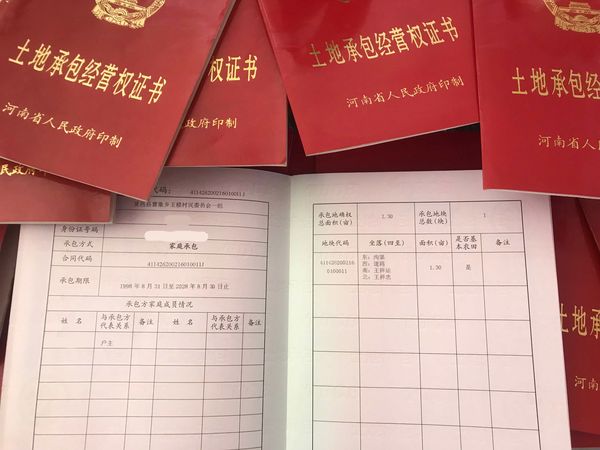 土地承包经营权证书
河南省人民政府印制
土地承包经营权证书
河南省人民政府印制
土地承包经营权证书
河南省人民政府印制
土地承包经营权证书
河南省人民政府印制
代码: 411426200216010011J
王楼村民委员会一组
身份证号码
承包方式 家庭承包
合同代码 411426200216010011J
承包期限 1998年8月31日至2028年8月30日止
承包方家庭成员情况
姓名 与承包方代表关系 备注 姓名 与承包方代表关系 备注
户主
承包地确权总面积(亩) 1.30 承包地块总数(块) 1
地块代码 坐落(四至) 面积(亩) 是否基本农田 备注
4114262002160100011 东:沟渠 1.30 是
西:道路